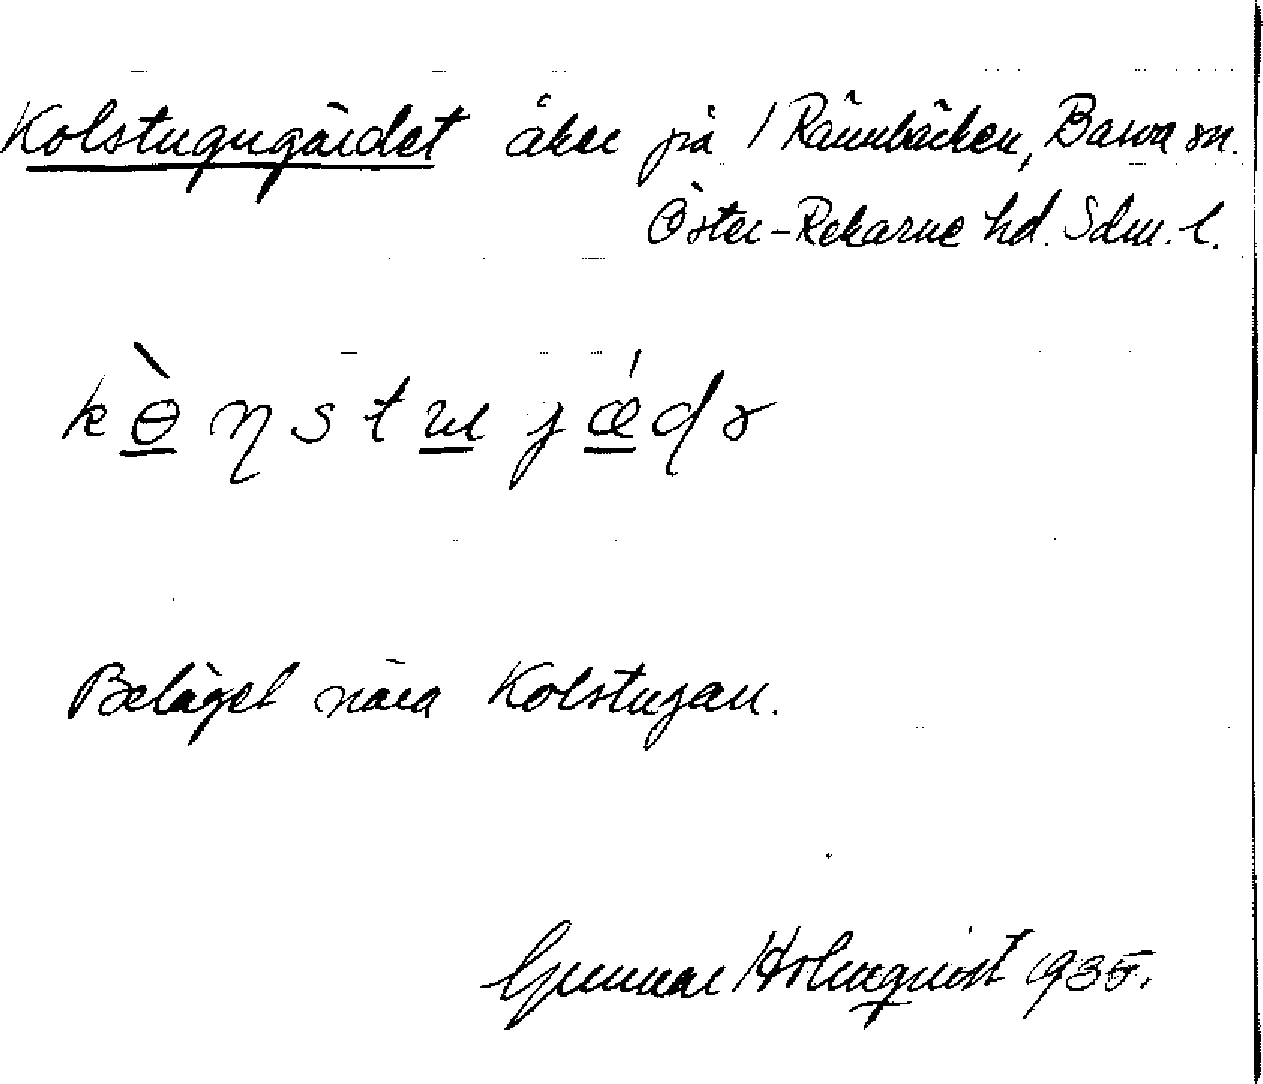 Kolstugugärdet åker på /Rännbäcken, Barva sn.
Öster-Rekarne hd. Sdm. l.
Beläget nära Kolstugan.
Gunnar Holmqvist 1935.